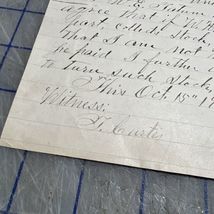 agree that if W. H.
part, collects Stock
that I am not
be paid I further
to turn such Stock,
This Oct 15th 1
Witness:
T. Curtis